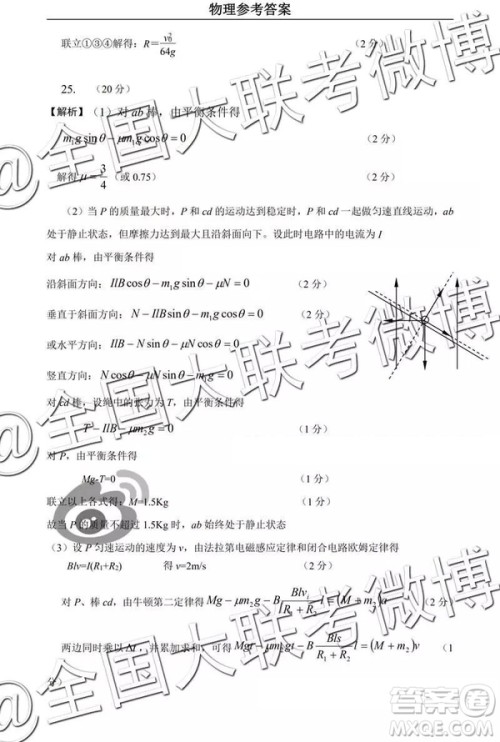 物理参考答案
联立①③④解得：R=v₀²/64g （2 分）
25. （20 分）
【解析】（1）对 ab 棒，由平衡条件得
m₁g sinθ − μm₁g cosθ = 0 （2 分）
解得 μ = 3/4（或 0.75） （2 分）
（2）当 P 的质量最大时，P 和 cd 的运动达到稳定时，P 和 cd 一起做匀速直线运动，ab
处于静止状态，但摩擦力达到最大且沿斜面向下。设此时电路中的电流为 I
对 ab 棒，由平衡条件得
沿斜面方向：IlBcosθ − m₁g sinθ − μN = 0 （2 分）
垂直于斜面方向：N − IlBsinθ − m₁g cosθ = 0 （2 分）
或水平方向：IlB − N sinθ − μN cosθ = 0
竖直方向：N cosθ − μN sinθ − m₁g = 0
对 cd 棒，设绳中的张力为 T，由平衡条件得
T − IlB − μm₂g = 0 （1 分）
对 P，由平衡条件得
Mg-T=0 （1 分）
联立以上各式得：M=1.5Kg
故当 P 的质量不超过 1.5Kg 时，ab 始终处于静止状态
（3）设 P 匀速运动的速度为 v，由法拉第电磁感应定律和闭合电路欧姆定律得
Blv=I(R₁+R₂) 得 v=2m/s （2 分）
对 P、棒 cd，由牛顿第二定律得 Mg − μm₂g − B Blv/(R₁ + R₂) l = (M + m₂)a （2 分）
两边同时乘以 Δt，并累加求和，可得 Mgt − μm₂gt − B Bls/(R₁ + R₂) l = (M + m₂)v （1
分）
@全国大联考微博
@全国大联考微博
@全国大联考微博
答案圈
MXQE.COM